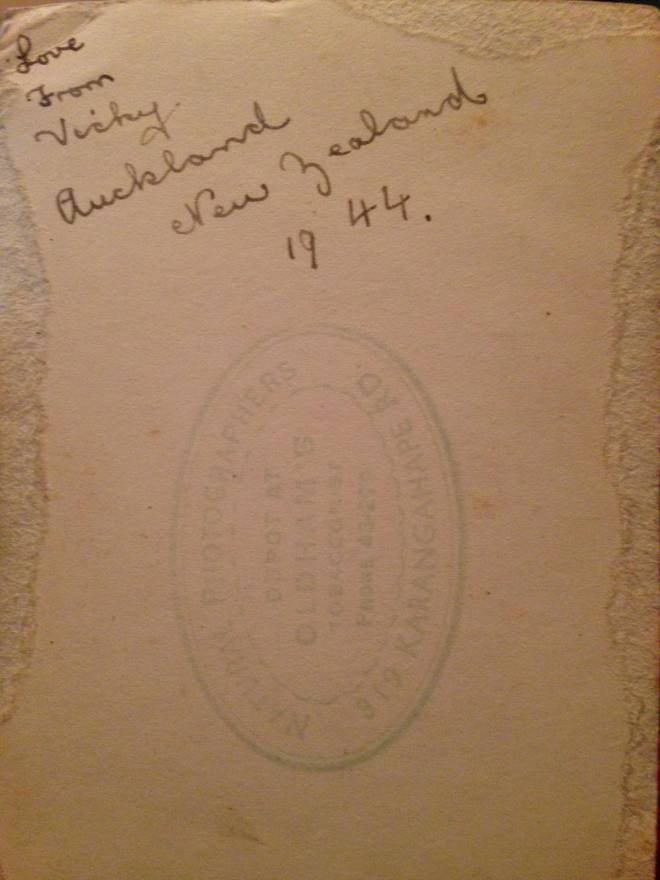 Love
From
Vicky.
Auckland
New Zealand
1944.
NATURAL PHOTOGRAPHERS
DEPOT AT
OLDHAM'S
TOBACCONIST
PHONE
KARANGAHAPE RD.